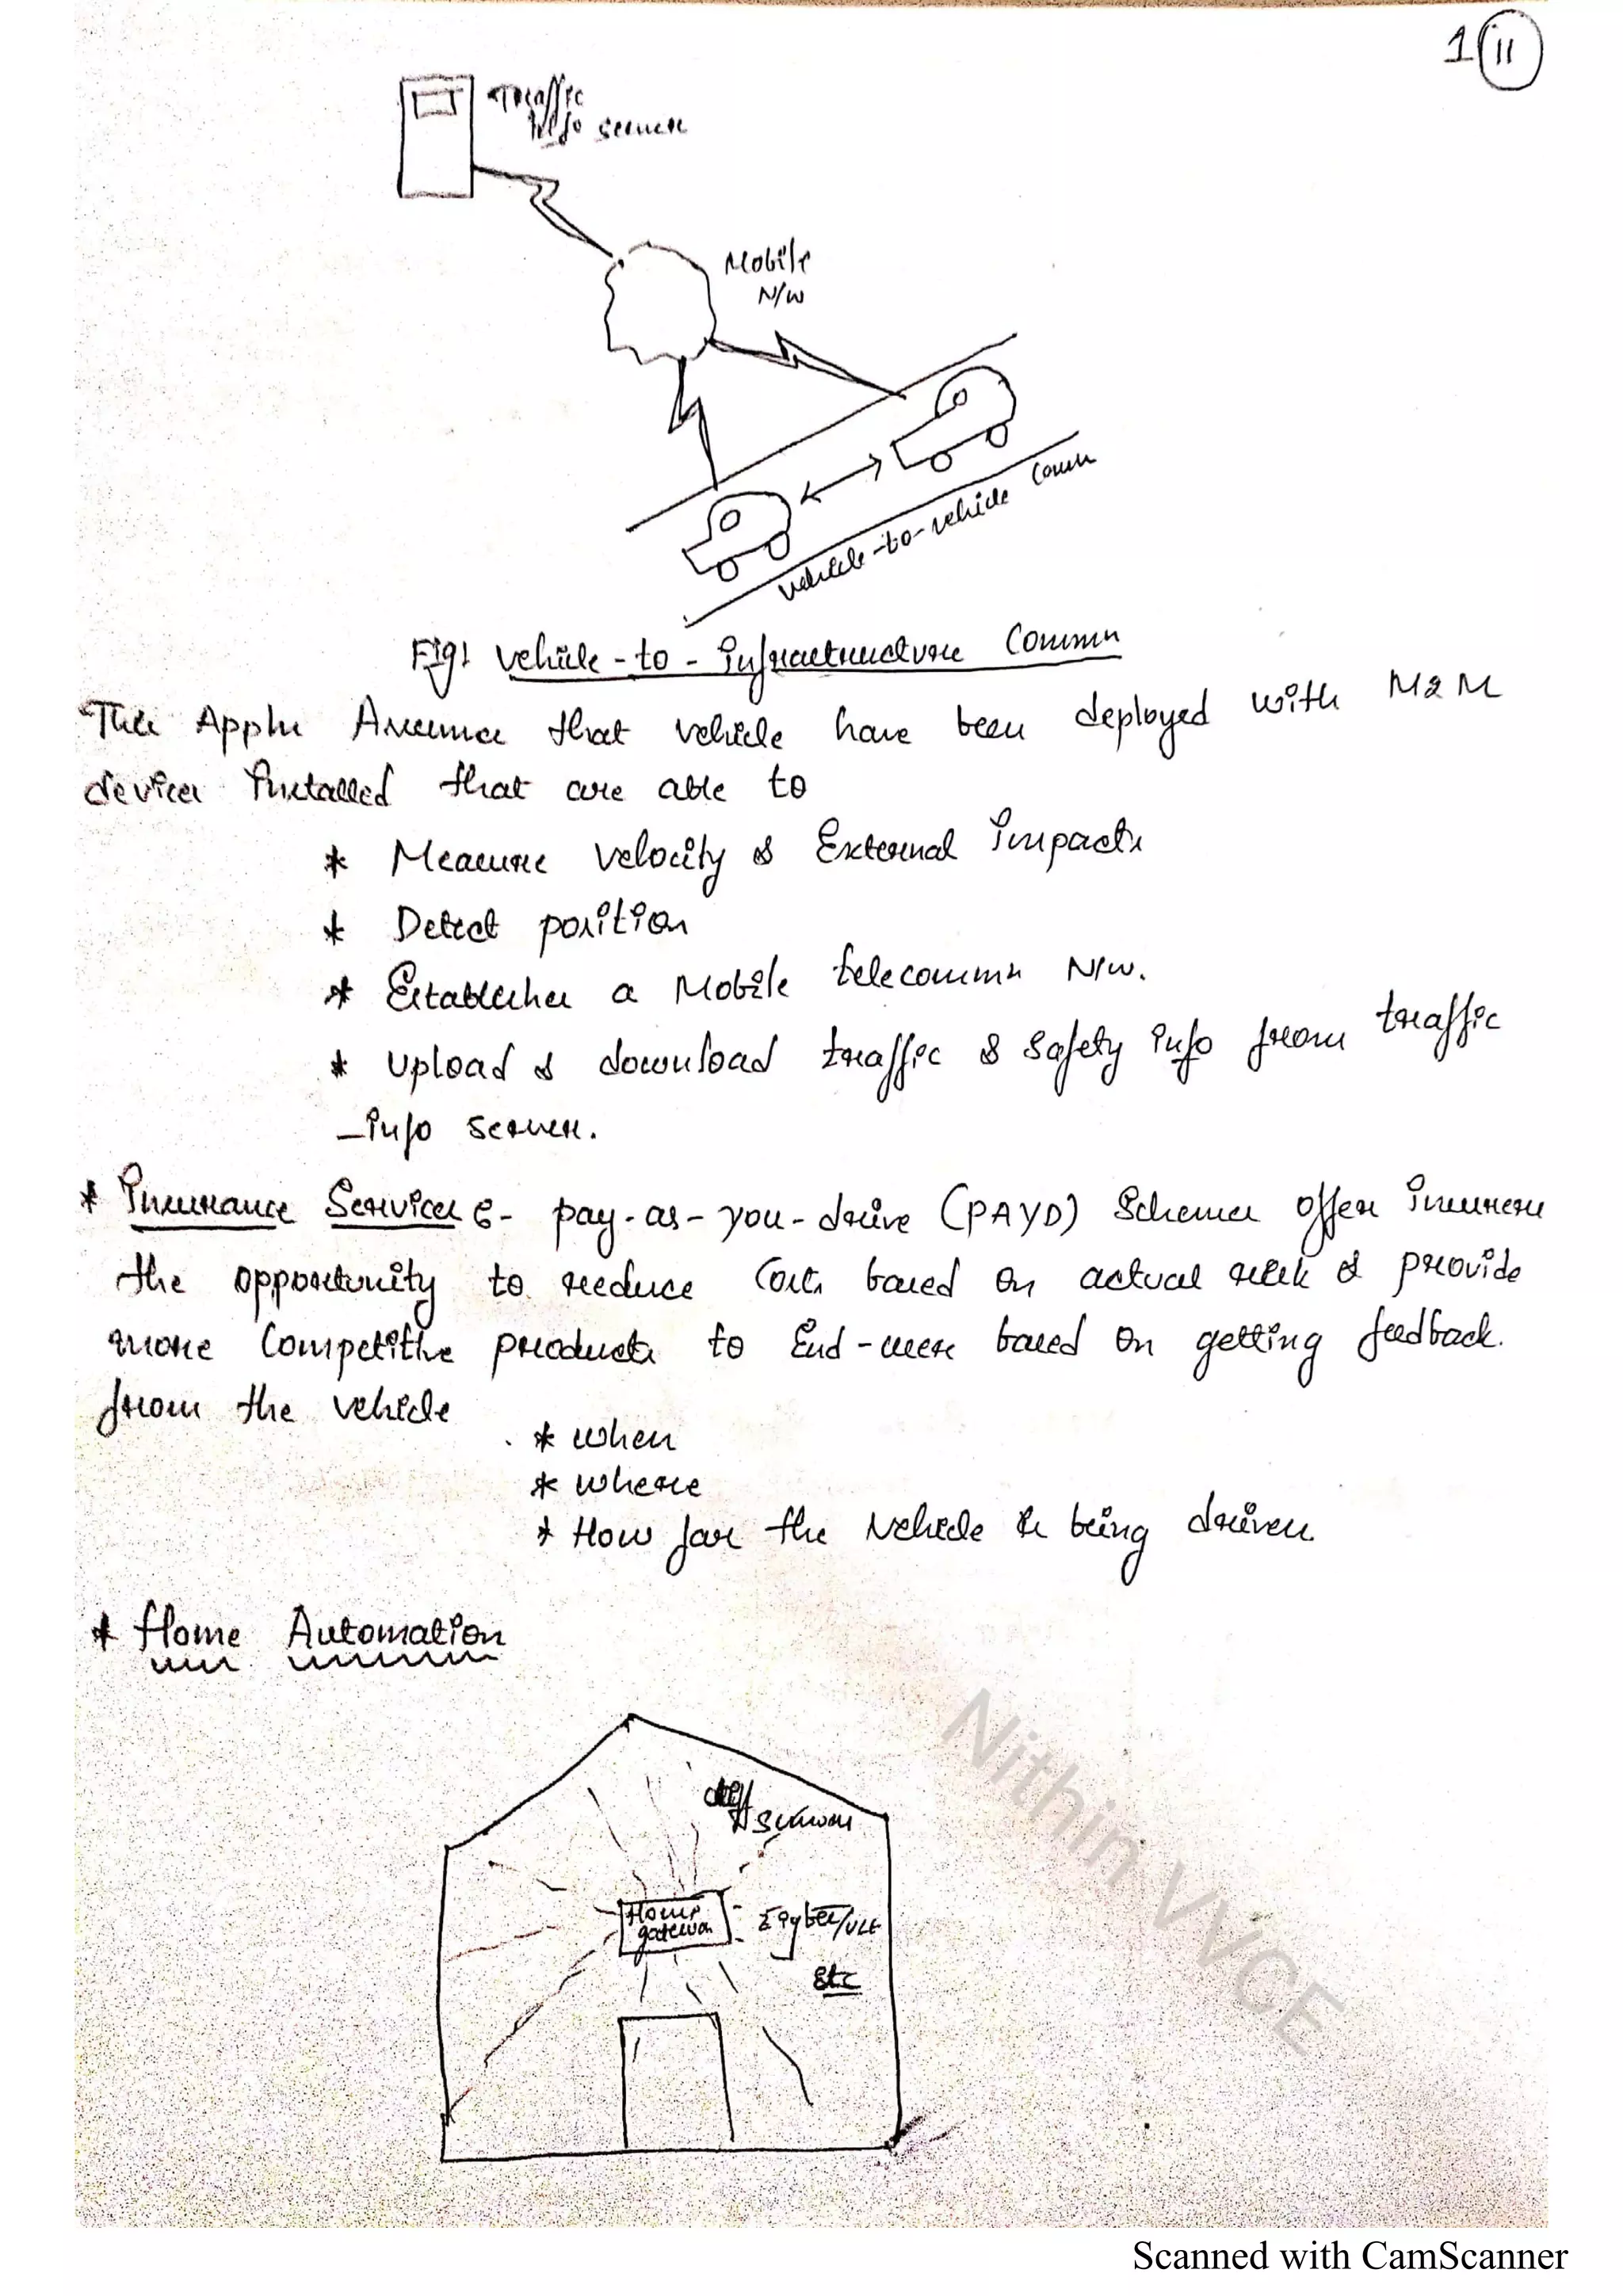 1 11
Traffic
Info server
Mobile
N/W
vehicle-to-vehicle Comm
Fig! Vehicle-to-infrastructure Commn
This Appln Assumes that vehicle have been deployed with M2M
devices Installed that are able to
* Measure velocity & External Impacts
* Detect position
* Establishes a Mobile telecommn N/W.
* Upload & download traffic & safety info from traffic
-info server.
* Insurance Services :- pay-as-you-drive (PAYD) Schemes offer insurers
the opportunity to reduce Costs based on actual risk & provide
more Competitive products to End-users based on getting feedback.
from the vehicle
* When
* Where
* How far the vehicle is being driven
* Home Automation
diff
sensors
Home
gateway
Zigbee/VLE
Etc
Nithin VVCE
Scanned with CamScanner